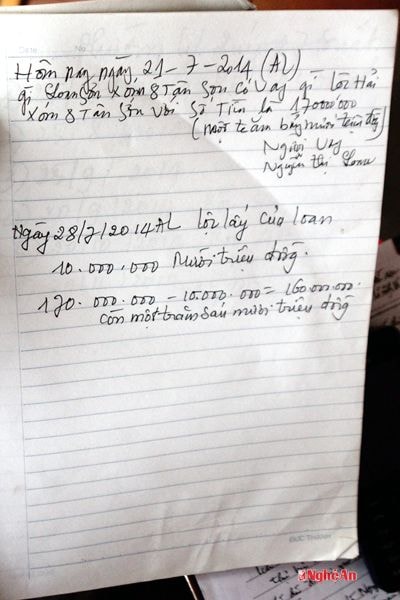 Date No
Hôm nay ngày, 21-7-2014 (AL)
gì Loan Sơn Xóm 8 Tân Sơn có vay gì lộc Hải
Xóm 8 Tân Sơn với số Tiền là 170000'000
(một trăm bảy mươi triệu đồng)
Người Vay
Nguyễn thị Loan
Ngày 28/7/2014 AL lộc lấy của loan
10.000.000 Mười triệu đồng.
170.000.000 - 10.000.000 = 160.000.000.
còn một trăm sáu mươi triệu đồng
ĐỨC THÀNH
Nghệ An